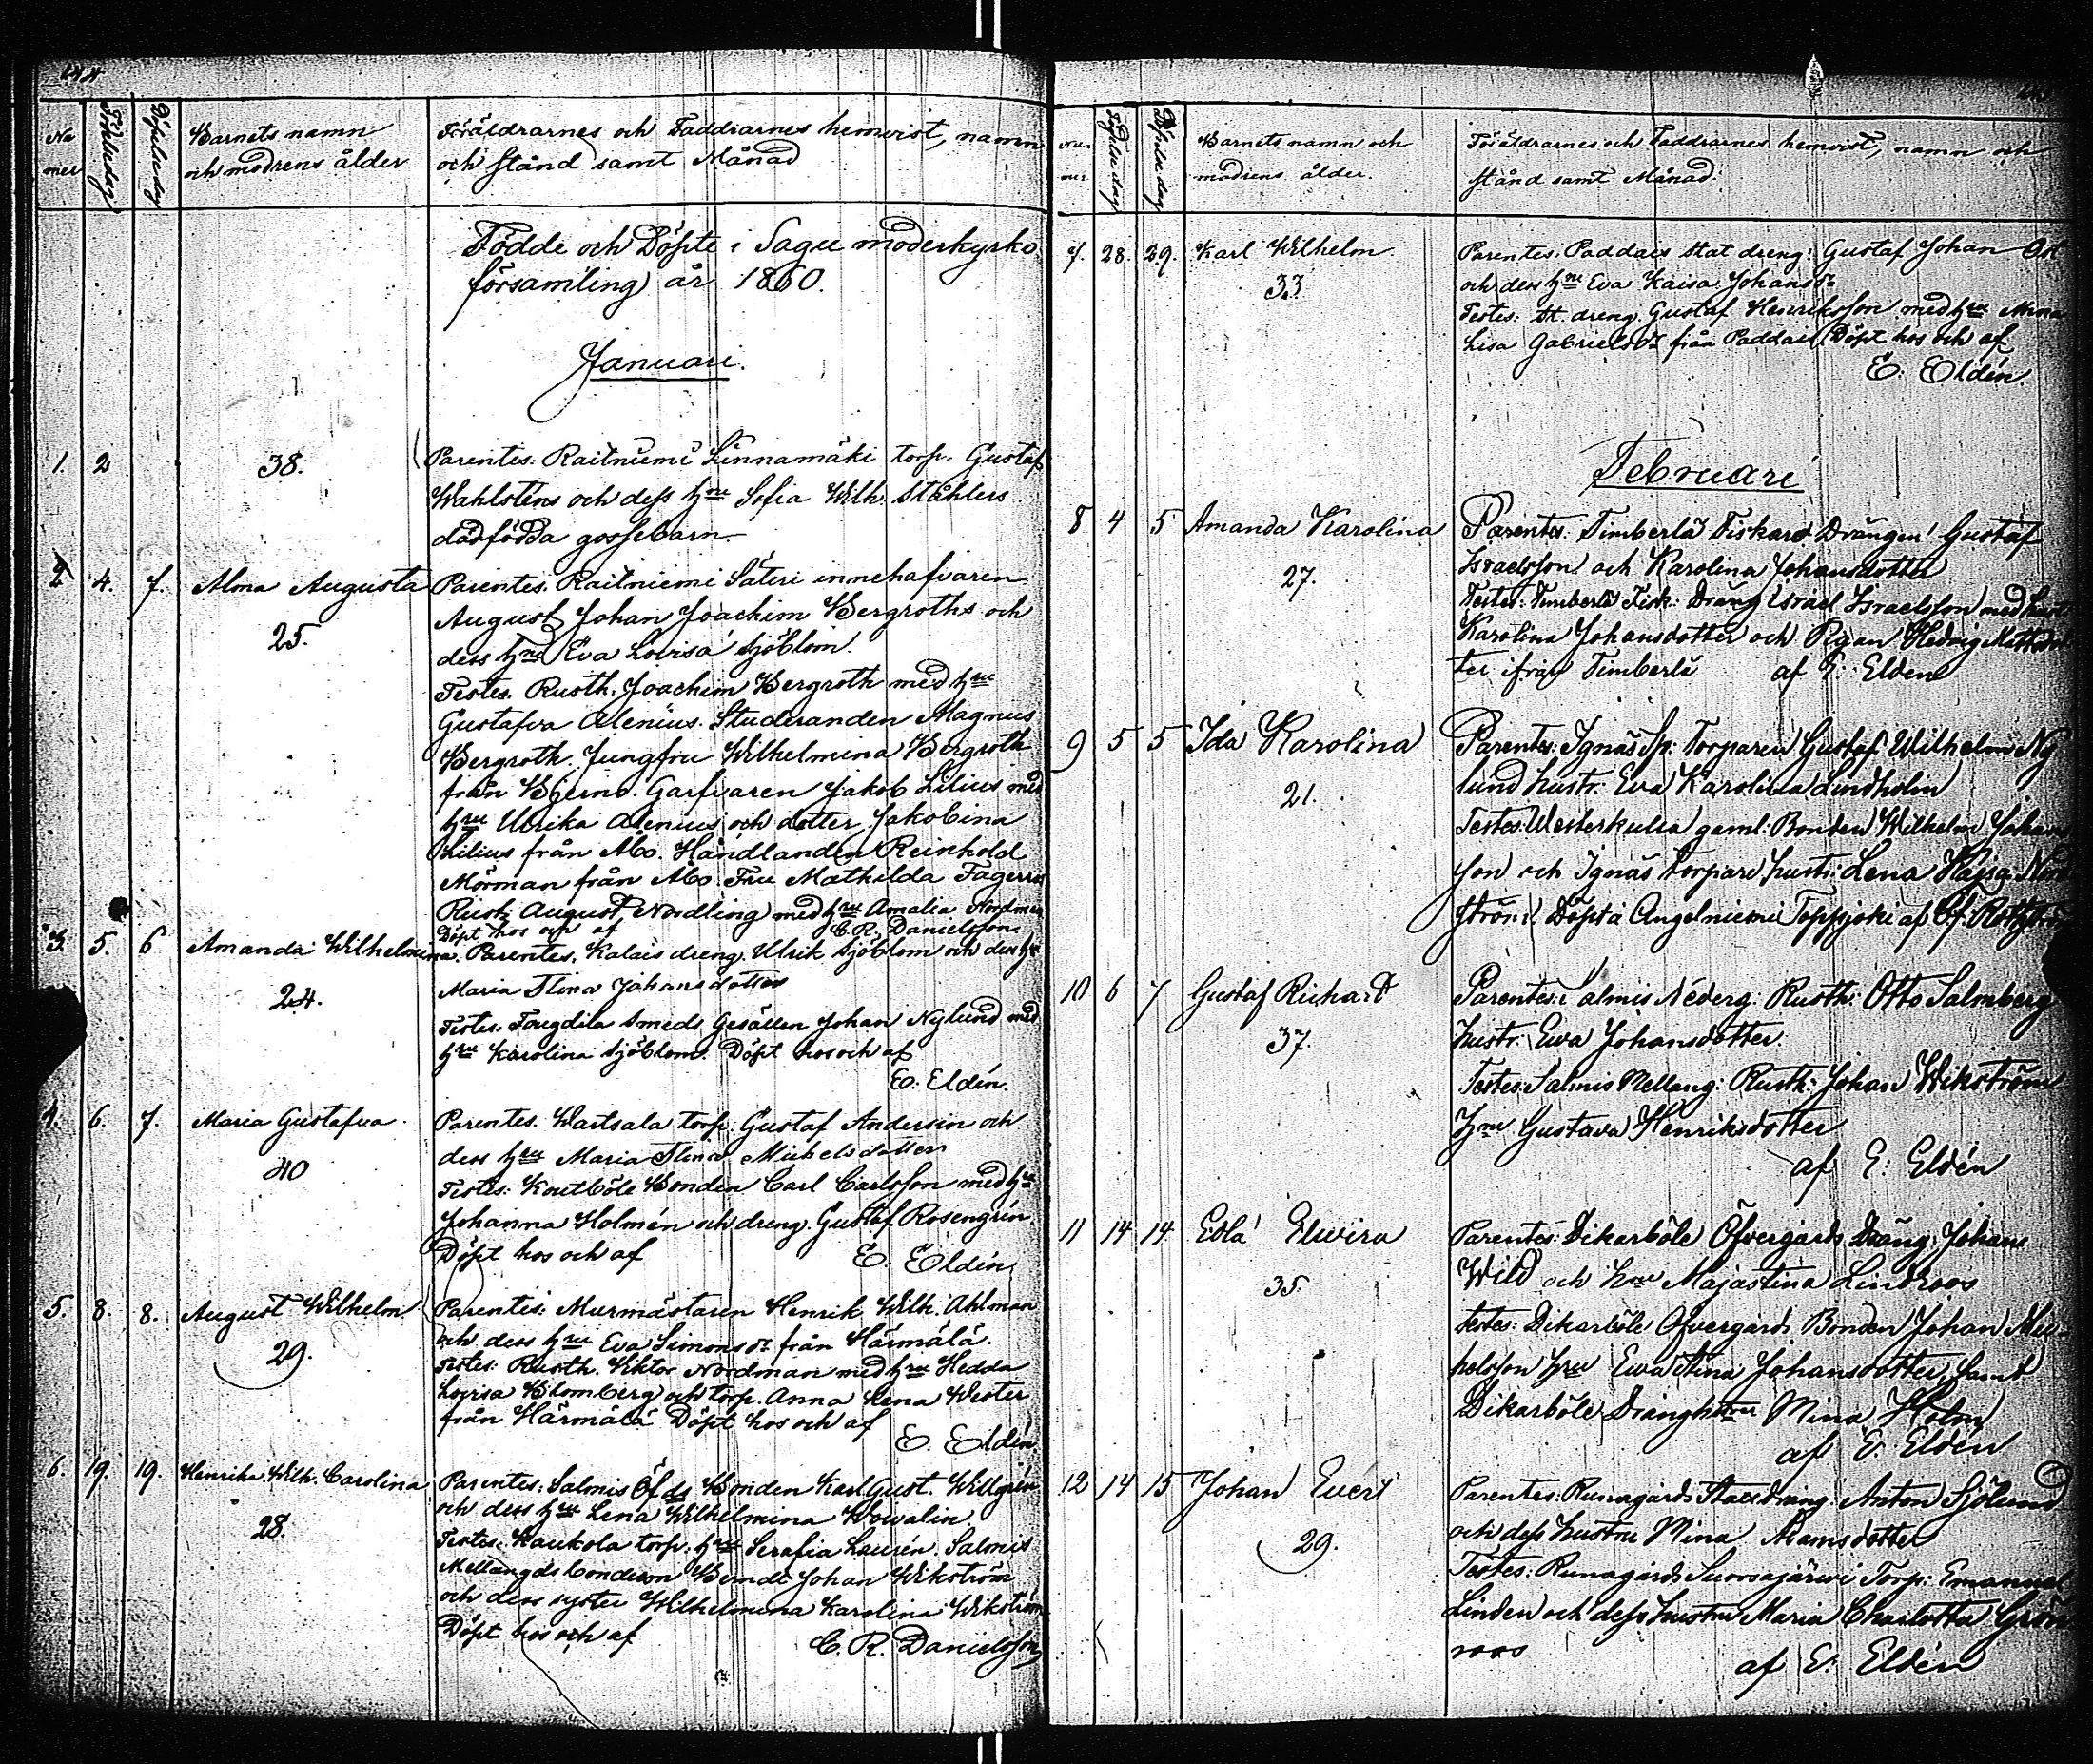 244
Nu
mer
Födelsedag
Döpelsedag
Barnets namn
och modrens ålder
Föräldrarnes och Faddrarnes hemvist, namn
och stånd samt Månad
Födde och Döpte i Sagu moderkyrko
församling år 1860.
Januari.
1. 2 38. Parentes: Raitniemi Linnamäki torp. Gustaf
Wahlsténs och dess hru Sofia Wilh. Ståhlers
dödfödda gossebarn
2 4. 7. Alma Augusta Parentes. Raitniemi Säteri innehafvaren
August Johan Joachim Bergroths och
25. dess hru Eva Lovisa Sjöblom.
Testes. Rusth. Joachim Bergroth med hru
Gustafva Alenius. Studeranden Magnus
Bergroth. Jungfru Wilhelmina Bergroth
från Bjerno. Garfvaren Jakob Lilius med
hru Ulrika Alenius och dotter Jakobina
Lilius från Åbo. Handlanden Reinhold
Mörman från Åbo. Fru Mathilda
Rusth. August Nordling med hru Amalia
Döpt hos och af C. R. Danielsson.
3. 5. 6 Amanda Wilhelmina. Parentes. Kalais dreng. Ulrik Sjöblom och dess hru
24. Maria Stina Johansdotter
Testes. Smeds Gesällen Johan Nylund med
hru Karolina Sjöblom. Döpt hos och af
E. Eldén.
4. 6. 7. Maria Gustafva. Parentes. Wartsala torp. Gustaf Andersin och
40 dess hru Maria Stina Michelsdotter
Testes: Koutböle Bonden Carl Carlsson med hru
Johanna Holmén och dreng. Gustaf Rosengrén.
Döpt hos och af E. Eldén
5. 8. 8. August Wilhelm. Parentes: Murmästaren Henrik Wilh. Ahlman
29. och dess hru Eva Simonsdr från Härmälä.
Testes: Rusth. Viktor Nordman med hru Hedda
Lovisa Blomberg och torp. Anna Lena Wester
från Härmälä Döpt hos och af
E. Eldén.
6. 19. 19. Henrika Wilh. Carolina Parentes: Salmis Öfgds Bonden Karl Gust. Willgrén
28. och dess hru Lena Wilhelmina Wowalin.
Testes. Kaukola torp. hru Serafia Laurén. Salmis
Mellangds bondeson Berndt Johan Wikström
och dess syster Wilhelmina Karolina Wikström
Döpt hos och af C. R. Danielsson
Nu-
mer
Födelsedag
Döpelsedag
Barnets namn och
modrens ålder.
Föräldrarnes och Faddrarnes hemvist, namn och
stånd samt Månad.
7. 28. 29. Karl Wilhelm. Parentes. Paddais stat dreng. Gustaf Johan
33. och dess hru Eva Kaisa Johansdr
Testes: St. dreng. Gustaf Henriksson med hru Anna
Lisa Gabrielsdr från Paddais. Döpt hos och af
E. Eldén.
Februari
8 4 5 Amanda Karolina Parentes: Timberlä Fiskars Drängen Gustaf
27. Israelsson och Karolina Johansdotter
Testes: Timberlä Fisk: Dräng Israel Israelsson med hust
Karolina Johansdotter och Pigan Hedvig
ter ifrån Timberlä af E. Eldén
9 5 5 Ida Karolina Parentes: Ignäs Torparen Gustaf Wilhelm Ny
21. lund hustr: Eva Karolina Lindholm
Testes: Westerkulla gaml: Bonden Wilhelm Johans
son och Ignäs torpare hustr: Lena Kajsa Nord
ström. Döpt i Angelniemi Toppjoki af
10 6 7 Gustaf Richard Parentes: Salmis Néderg: Rusth: Otto Salmberg
37. hustr: Ewa Johansdotter.
Testes: Salmis Mellang: Rusth: Johan Wikström
Hru Gustava Henriksdotter
af E: Eldén
11 14 14 Edla Elwira Parentes: Dikarböle Öfvergårds Dräng Johan
35. Wild och hru Majastina Lindroos
Testes: Dikarböle Ofvergårds Bonden Johan Mic-
helsson hru Ewa Stina Johansdotter samt
Dikarböle Dränghstru Mina Holm
af E. Eldén
12 14 15 Johan Evert Parentes: Runagårds Statdräng: Anton Sjölund
29. och dess hustru Mina Adamsdotter
Testes: Runagårds Suorsajärwi Torp: Emanuel
Linden och dess hustru Maria Charlotta Grön
roos
af E. Eldén